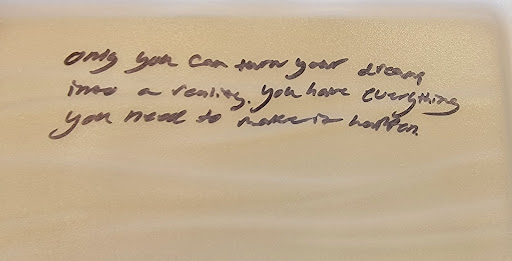 only you can turn your dream
into a reality. you have everything
you need to make it happen